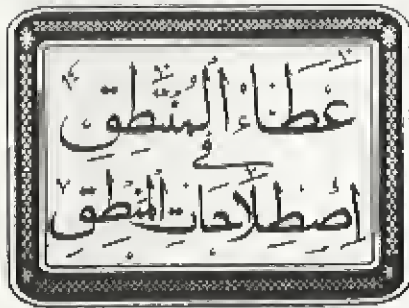 عَطَاءُ الْمُنْطِقِ
فِي
إِصْطِلَاحَاتِ الْمَنْطِقِ